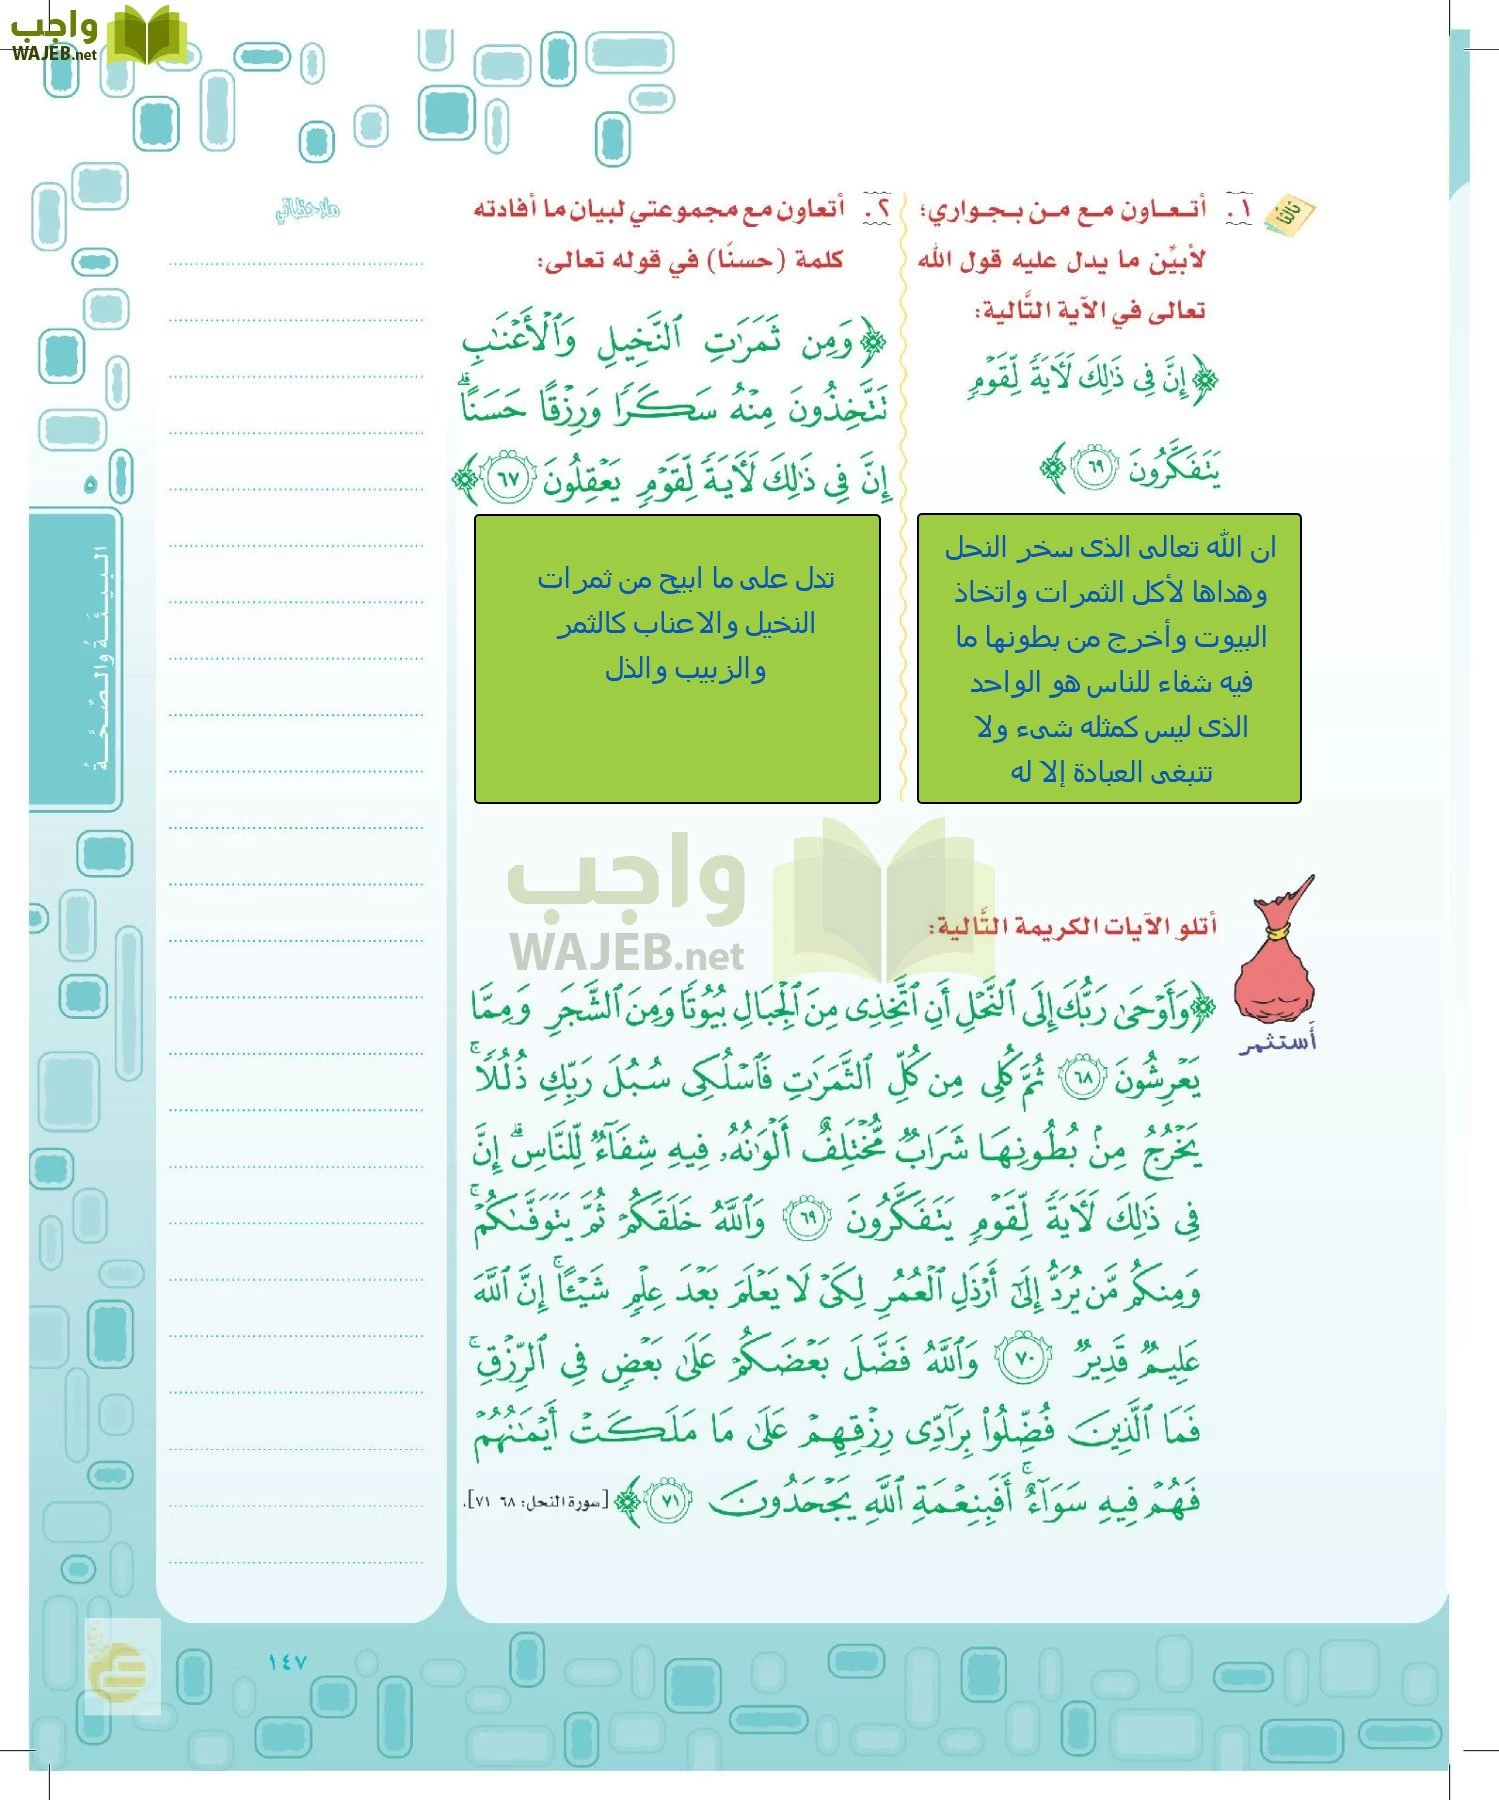 واجب
WAJEB.net
ثالثًا
١. أتعاون مع من بجواري؛
لأبيِّن ما يدل عليه قول الله
تعالى في الآية التَّالية:
﴿إِنَّ فِى ذَٰلِكَ لَءَايَةً لِّقَوْمٍ
يَتَفَكَّرُونَ ٦٩﴾
ان الله تعالى الذى سخر النحل
وهداها لأكل الثمرات واتخاذ
البيوت وأخرج من بطونها ما
فيه شفاء للناس هو الواحد
الذى ليس كمثله شىء ولا
تنبغى العبادة إلا له
٢. أتعاون مع مجموعتي لبيان ما أفادته
كلمة (حسنًا) في قوله تعالى:
﴿وَمِن ثَمَرَٰتِ ٱلنَّخِيلِ وَٱلْأَعْنَٰبِ
تَتَّخِذُونَ مِنْهُ سَكَرًا وَرِزْقًا حَسَنًا ۗ
إِنَّ فِى ذَٰلِكَ لَءَايَةً لِّقَوْمٍ يَعْقِلُونَ ٦٧﴾
تدل على ما ابيح من ثمرات
النخيل والاعناب كالثمر
والزبيب والذل
ملاحظاتي
٥
البيئَةُ والصِّحَّةُ
واجب
WAJEB.net
أستثمر
أتلو الآيات الكريمة التَّالية:
﴿وَأَوْحَىٰ رَبُّكَ إِلَى ٱلنَّحْلِ أَنِ ٱتَّخِذِى مِنَ ٱلْجِبَالِ بُيُوتًا وَمِنَ ٱلشَّجَرِ وَمِمَّا
يَعْرِشُونَ ٦٨ ثُمَّ كُلِى مِن كُلِّ ٱلثَّمَرَٰتِ فَٱسْلُكِى سُبُلَ رَبِّكِ ذُلُلًا ۚ
يَخْرُجُ مِنۢ بُطُونِهَا شَرَابٌ مُّخْتَلِفٌ أَلْوَٰنُهُۥ فِيهِ شِفَآءٌ لِّلنَّاسِ ۗ إِنَّ
فِى ذَٰلِكَ لَءَايَةً لِّقَوْمٍ يَتَفَكَّرُونَ ٦٩ وَٱللَّهُ خَلَقَكُمْ ثُمَّ يَتَوَفَّىٰكُمْ ۚ
وَمِنكُم مَّن يُرَدُّ إِلَىٰٓ أَرْذَلِ ٱلْعُمُرِ لِكَىْ لَا يَعْلَمَ بَعْدَ عِلْمٍ شَيْـًٔا ۚ إِنَّ ٱللَّهَ
عَلِيمٌ قَدِيرٌ ٧٠ وَٱللَّهُ فَضَّلَ بَعْضَكُمْ عَلَىٰ بَعْضٍ فِى ٱلرِّزْقِ ۚ
فَمَا ٱلَّذِينَ فُضِّلُوا۟ بِرَآدِّى رِزْقِهِمْ عَلَىٰ مَا مَلَكَتْ أَيْمَٰنُهُمْ
فَهُمْ فِيهِ سَوَآءٌ ۚ أَفَبِنِعْمَةِ ٱللَّهِ يَجْحَدُونَ ٧١﴾ [سورة النحل: ٦٨ ٧١].
١٤٧